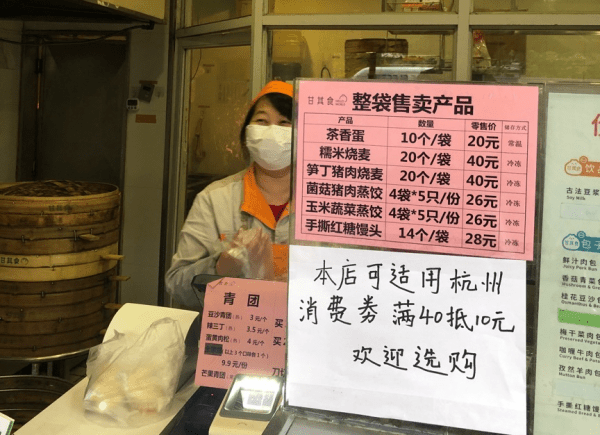 甘其食
整袋售卖产品
产品 数量 零售价 储存方式
茶香蛋 10个/袋 20元 常温
糯米烧麦 20个/袋 40元 冷冻
笋丁猪肉烧麦 20个/袋 40元 冷冻
菌菇猪肉蒸饺 4袋*5只/份 26元 冷冻
玉米蔬菜蒸饺 4袋*5只/份 26元 冷冻
手撕红糖馒头 14个/袋 28元 冷冻
本店可适用杭州
消费券 满40抵10元
欢迎选购
青团
豆沙青团 3元/个
辣三丁 3.5元/个
蛋黄肉松 4元/个
买
9.9元/份
芒果青团
甘其食
饮
古法豆浆
Soy Milk
包子
鲜汁肉包
Juicy Pork Bun
香菇青菜包
桂花豆沙包
梅干菜肉包
咖喱牛肉包
孜然羊肉包
Mutton Bun
手撕红糖馒头